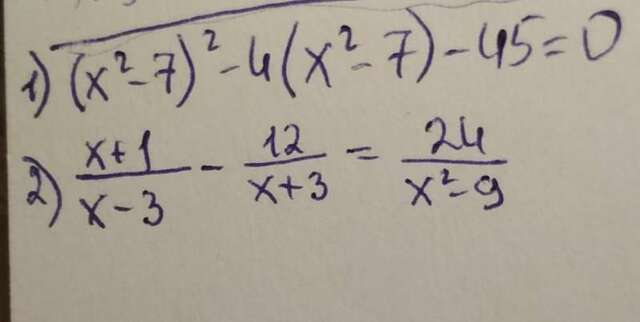 1) (x²-7)²-4(x²-7)-45=0
2) (x+1)/(x-3) - 12/(x+3) = 24/(x²-9)